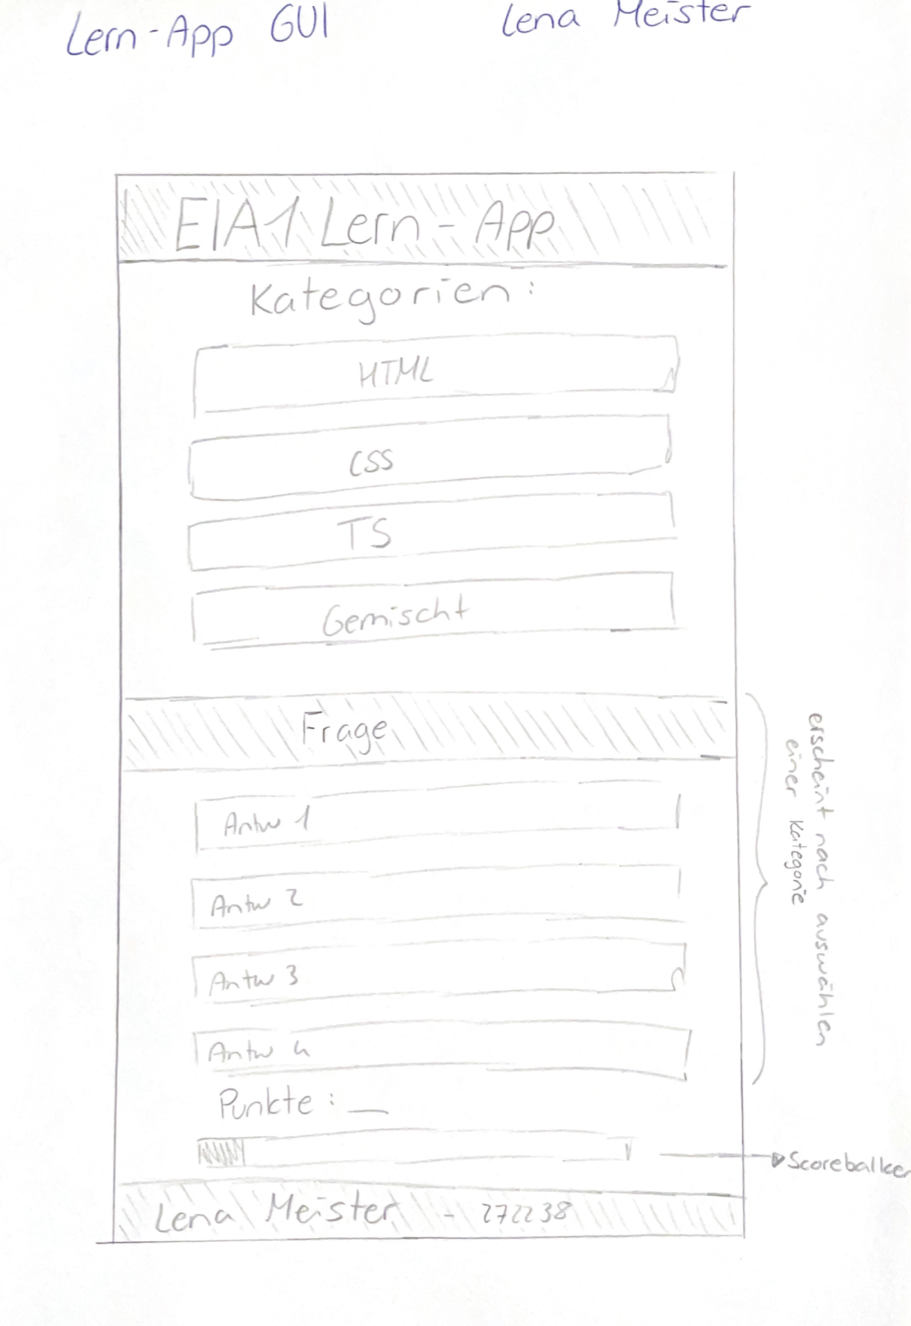 Lern-App GUI
Lena Meister
EIA1 Lern-App
Kategorien:
HTML
CSS
TS
Gemischt
Frage
Antw 1
Antw 2
Antw 3
Antw 4
erscheint nach auswählen
einer Kategorie
Punkte: __
Scoreballken
Lena Meister - 272238